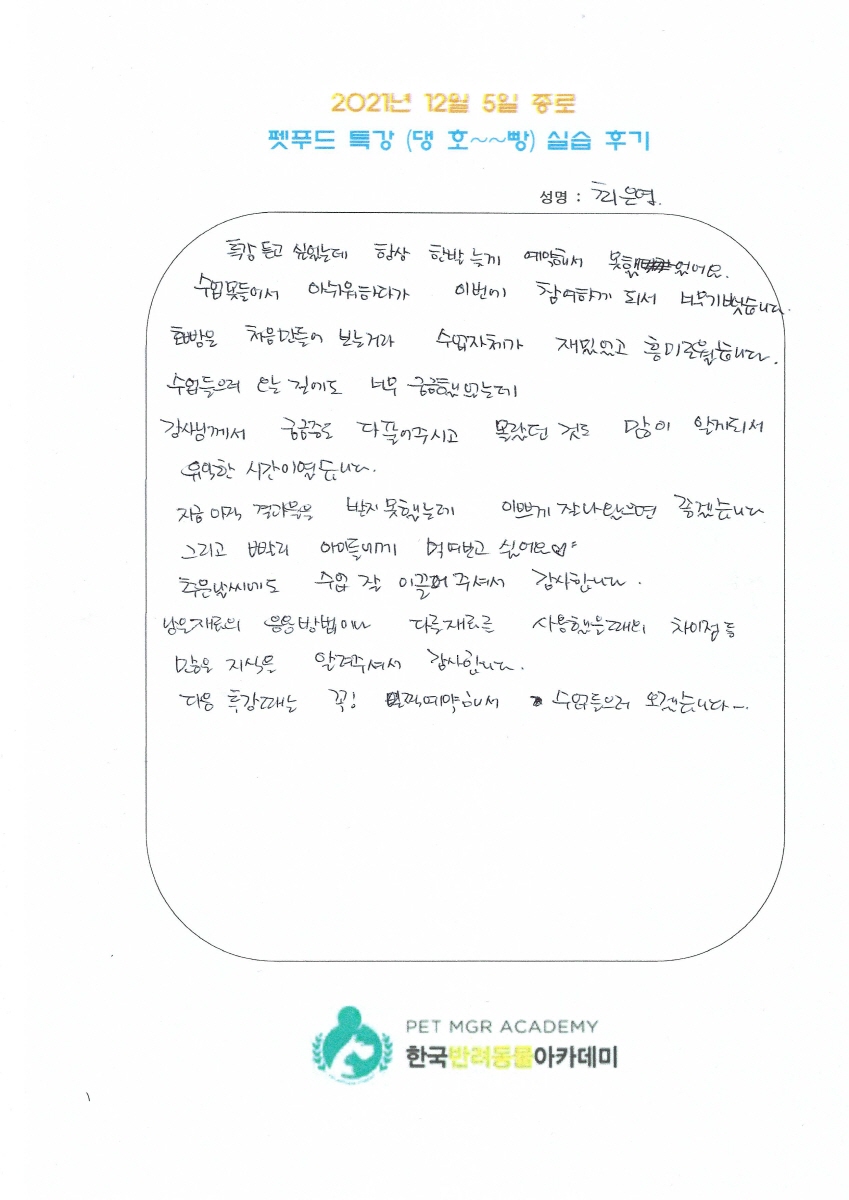 2021년 12월 5일 종로
펫푸드 특강 (댕 호~~빵) 실습 후기
성명 : 최은영.
특강 듣고 싶었는데 항상 한발 늦게 예약해서 못했었어요.
수업못들어서 아쉬워하다가 이번에 참여하게 되서 너무기뻤습니다.
호빵을 처음만들어 보는거라 수업자체가 재밌었고 흥미로웠습니다.
수업들으러 오는 길에도 너무 궁금했었는데
강사님께서 궁금증도 다 풀어주시고 몰랐던 것도 많이 알게되서
유익한 시간이였습니다.
지금 아직 결과물을 받지 못했는데 이쁘게 잘나왔으면 좋겠습니다
그리고 빨리 아이들에게 먹여보고 싶어요
추운날씨에도 수업 잘 이끌어 주셔서 감사합니다.
남은재료의 응용방법이나 다른재료를 사용했을때의 차이점 등
많은 지식을 알려주셔서 감사합니다.
다음 특강때는 꼭! 일찍예약해서 수업들으러 오겠습니다~.
PET MGR ACADEMY
한국반려동물아카데미